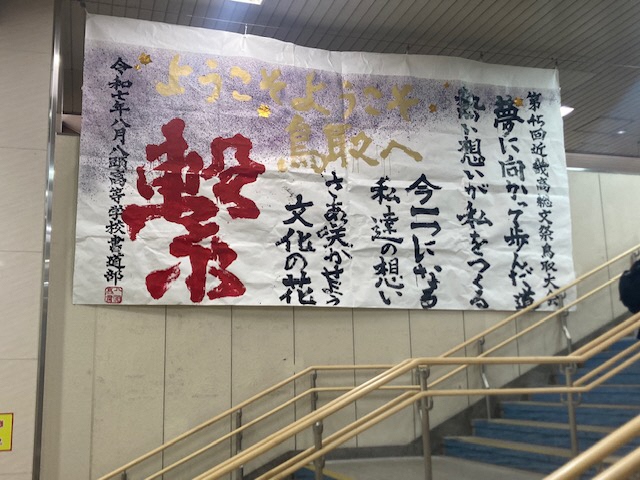 第45回近畿高総文祭鳥取大会
夢に向かって歩んだ道
熱い想いが私をつくる
ようこそようこそ
鳥取へ
今一つになる
私達の想い
さあ咲かせよう
文化の花
繋
令和七年八月八頭高等学校書道部